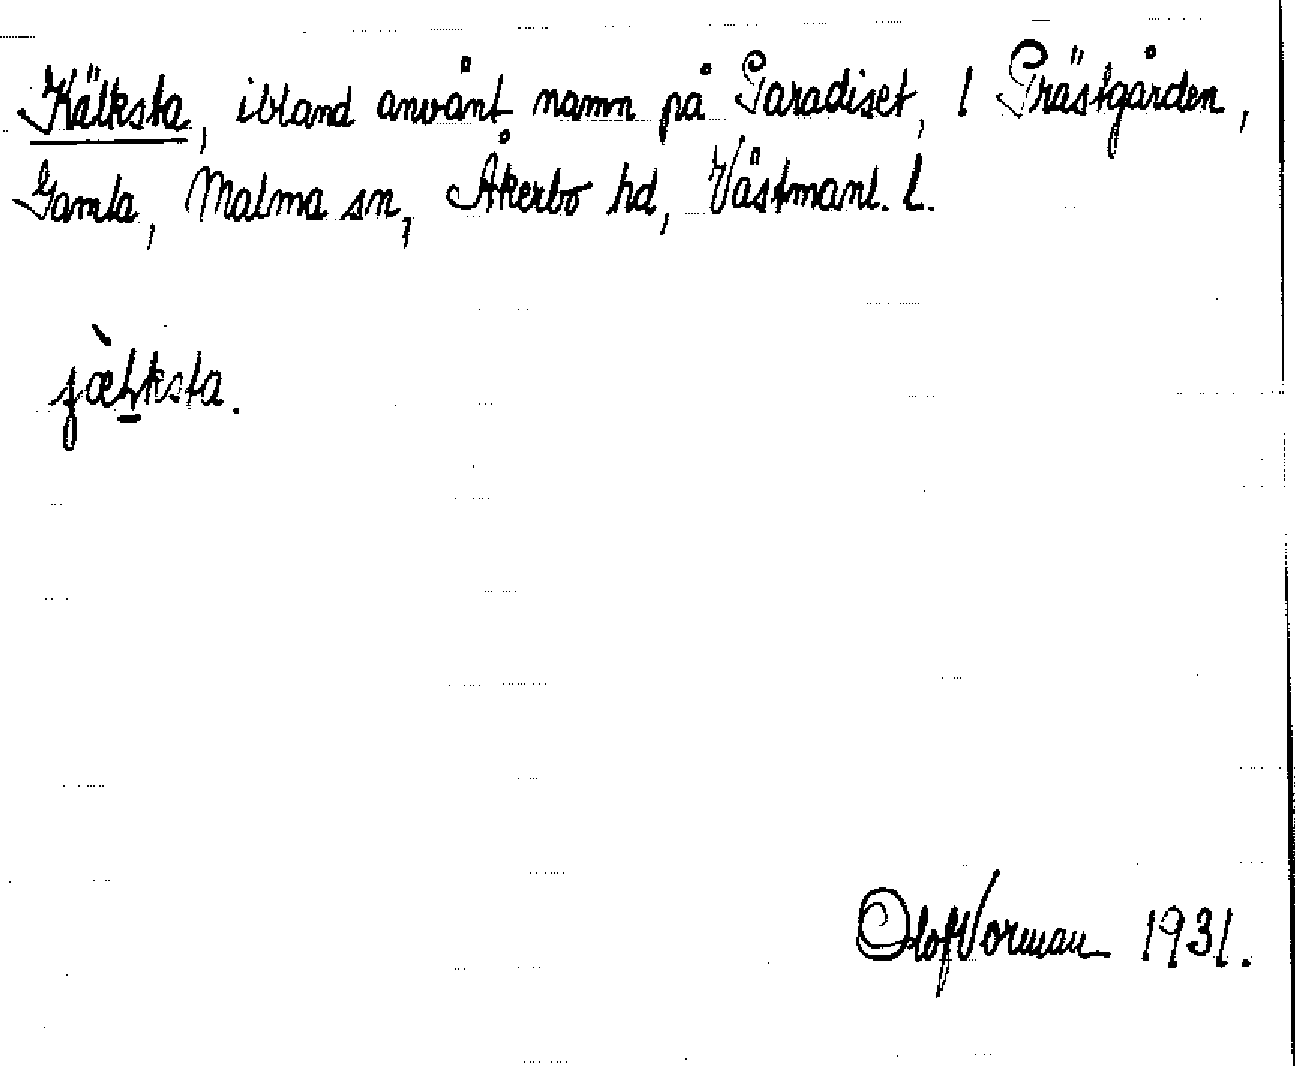 Kälksta, ibland använt namn på Paradiset, l Prästgården,
Gamla, Malma sn, Åkerbo hd, Västmanl. l.
jæ̀ḻksta.
Olof Vorman 1931.